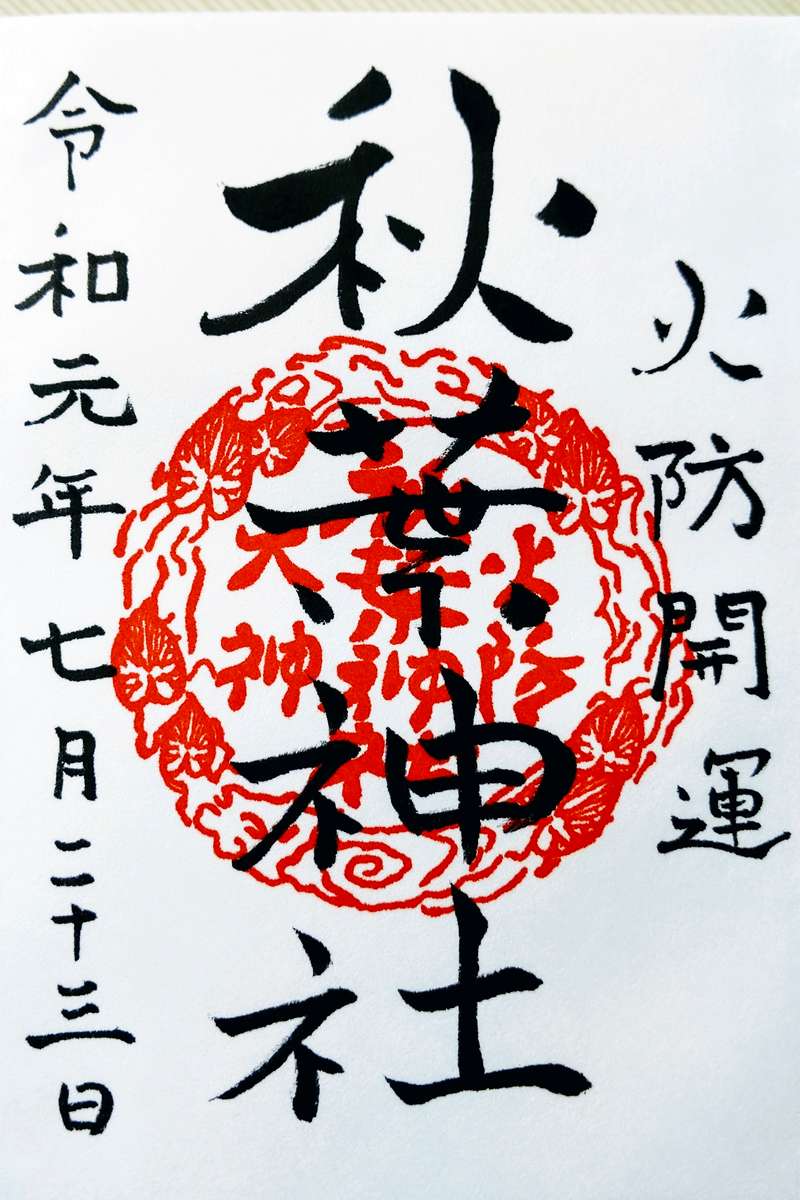 火防開運
秋葉神社
火防
大神
令和元年七月二十三日